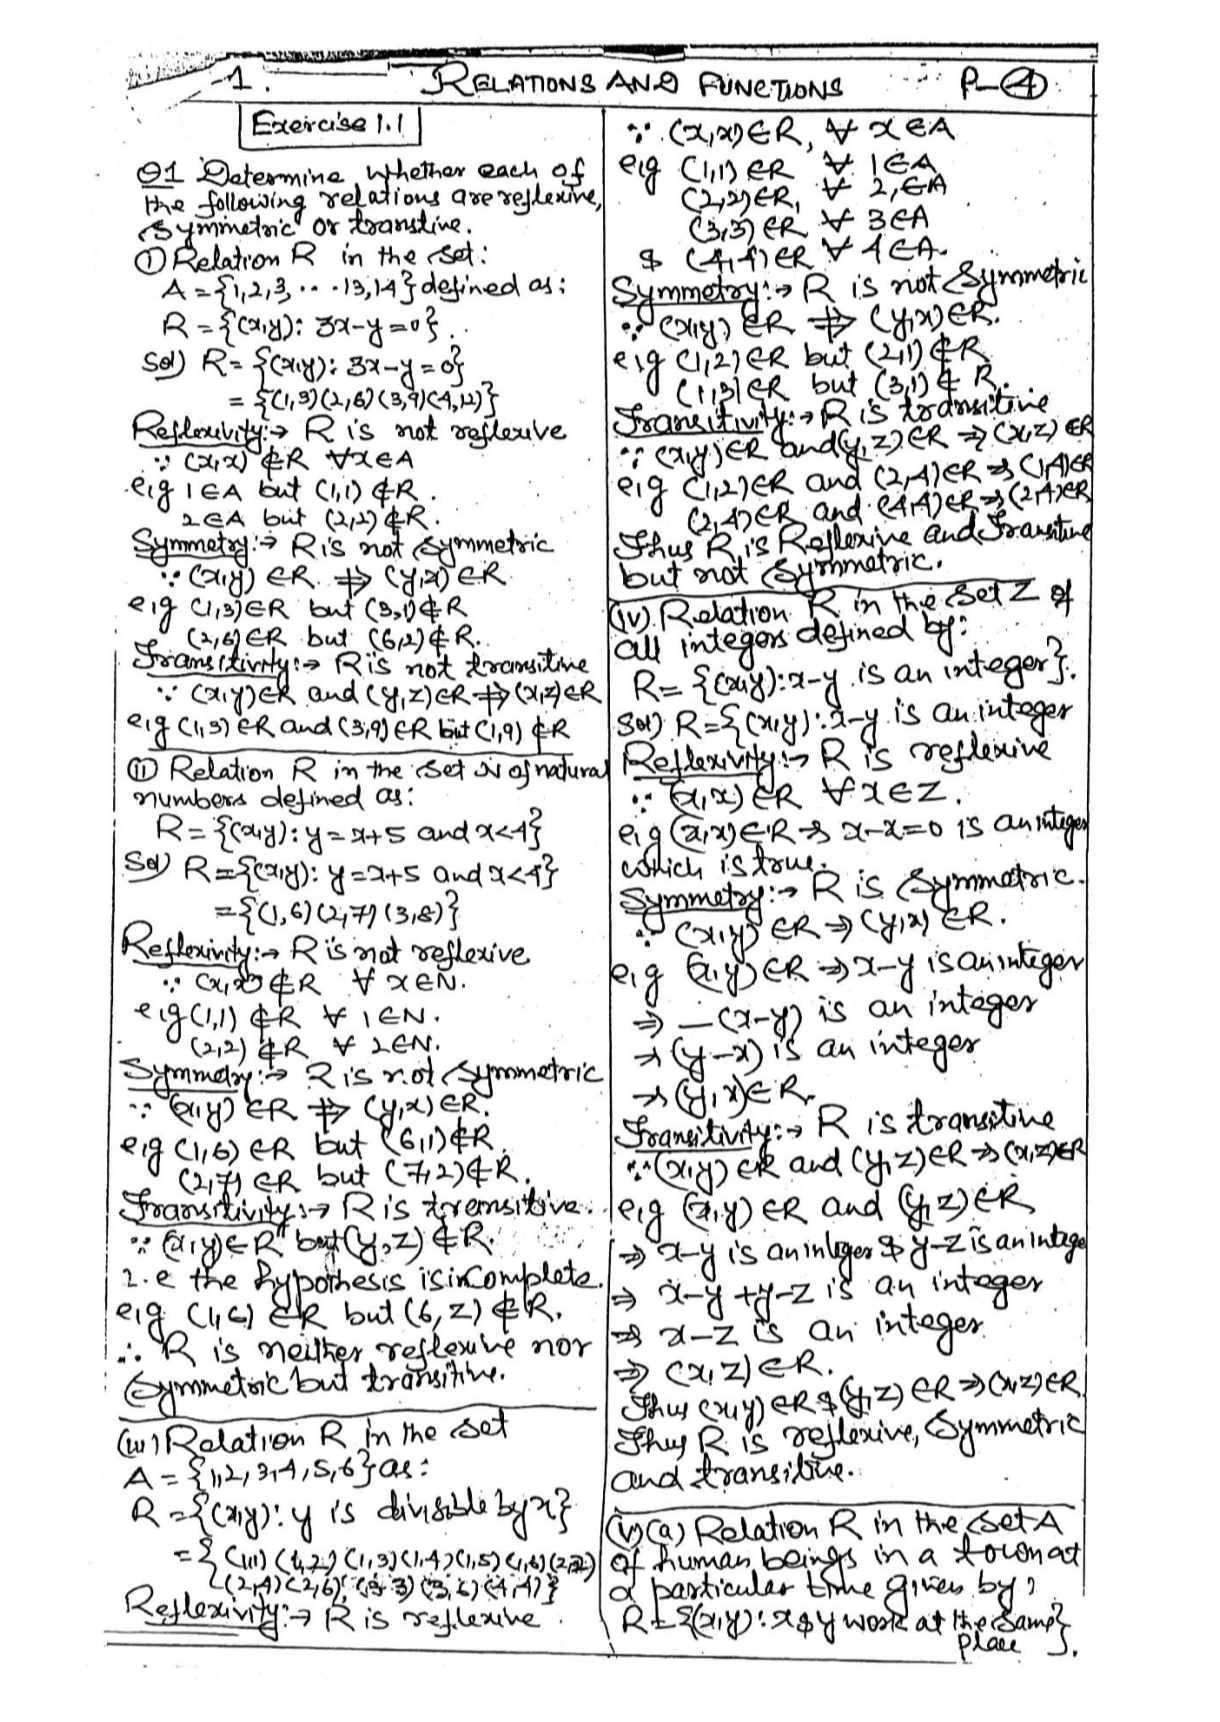 1. RELATIONS AND FUNCTIONS P-4
Exercise 1.1
Q1 Determine whether each of
the following relations are reflexive,
Symmetric or transtive.
(i) Relation R in the set:
A = {1,2,3, ... 13,14} defined as:
R = {(x,y): 3x-y=0}.
Sol) R = {(x,y): 3x-y=0}
= {(1,3)(2,6)(3,9)(4,12)}
Reflexivity:→ R is not reflexive
∵ (x,x) ∉R ∀x∈A
e,g 1∈A but (1,1) ∉R.
2∈A but (2,2) ∉R.
Symmetry:→ R is not Symmetric
∵ (x,y) ∈R ⇏ (y,x) ∈R
e,g (1,3)∈R but (3,1)∉R
(2,6)∈R but (6,2)∉R.
Transitivity:→ R is not transitive
∵ (x,y)∈R and (y,z)∈R ⇏ (x,z)∈R
e,g (1,3) ∈R and (3,9) ∈R but (1,9) ∉R
(ii) Relation R in the set N of natural
numbers defined as:
R = {(x,y): y=x+5 and x<4}
Sol) R={(x,y): y=x+5 and x<4}
={(1,6)(2,7)(3,8)}
Reflexivity:→ R is not reflexive
∵ (x,x) ∉R ∀ x∈N.
e,g (1,1) ∉R ∀ 1∈N.
(2,2) ∉R ∀ 2∈N.
Symmetry:→ R is not Symmetric
∵ (x,y) ∈R ⇏ (y,x) ∈R.
e,g (1,6) ∈R but (6,1)∉R
(2,7) ∈R but (7,2)∉R.
Transitivity:→ R is transitive.
∵ (x,y)∈R but (y,z) ∉R.
i.e the hypothesis is incomplete.
e,g (1,6) ∈R but (6,z) ∉R.
∴ R is neither reflexive nor
Symmetric but transitive.
(iii) Relation R in the set
A = {1,2,3,4,5,6} as:
R = {(x,y): y is divisible by x}
= {(1,1) (1,2) (1,3) (1,4) (1,5) (1,6) (2,2)
(2,4) (2,6) (3,3) (3,6) (4,4)}
Reflexivity:→ R is reflexive.
∵ (x,x)∈R, ∀ x∈A
e,g (1,1) ∈R ∀ 1∈A
(2,2)∈R, ∀ 2,∈A
(3,3) ∈R ∀ 3∈A
& (4,4) ∈R ∀ 4∈A.
Symmetry:→ R is not Symmetric
∵ (x,y) ∈R ⇏ (y,x)∈R.
e,g (1,2)∈R but (2,1)∉R
(1,3)∈R but (3,1) ∉ R.
Transitivity:→ R is transitive
∵ (x,y)∈R and (y,z)∈R ⇒ (x,z) ∈R
e,g (1,2)∈R and (2,4)∈R ⇒ (1,4)∈R
(2,4)∈R and (4,4)∈R ⇒ (2,4)∈R
Thus R is Reflexive and Transitive
but not Symmetric.
(iv) Relation R in the set Z of
all integers defined by:
R = {(x,y): x-y is an integer}.
Sol) R={(x,y): x-y is an integer
Reflexivity:→ R is reflexive
∵ (x,x) ∈R ∀ x∈Z.
e,g (x,x)∈R ⇒ x-x=0 is an integer
which is true.
Symmetry:→ R is Symmetric.
∵ (x,y) ∈R ⇒ (y,x) ∈R.
e,g (x,y) ∈R ⇒ x-y is an integer
⇒ -(x-y) is an integer
⇒ (y-x) is an integer
⇒ (y,x)∈R.
Transitivity:→ R is transitive
∵ (x,y) ∈R and (y,z)∈R ⇒ (x,z)∈R
e,g (x,y) ∈R and (y,z) ∈R
⇒ x-y is an integer & y-z is an intege
⇒ x-y+y-z is an integer
⇒ x-z is an integer
⇒ (x,z) ∈R.
Thus (x,y) ∈R & (y,z) ∈R ⇒ (x,z)∈R.
Thus R is reflexive, Symmetric
and transitive.
(v)(a) Relation R in the set A
of human beings in a town at
a particular time given by:
R = {(x,y): x & y work at the same
place}.